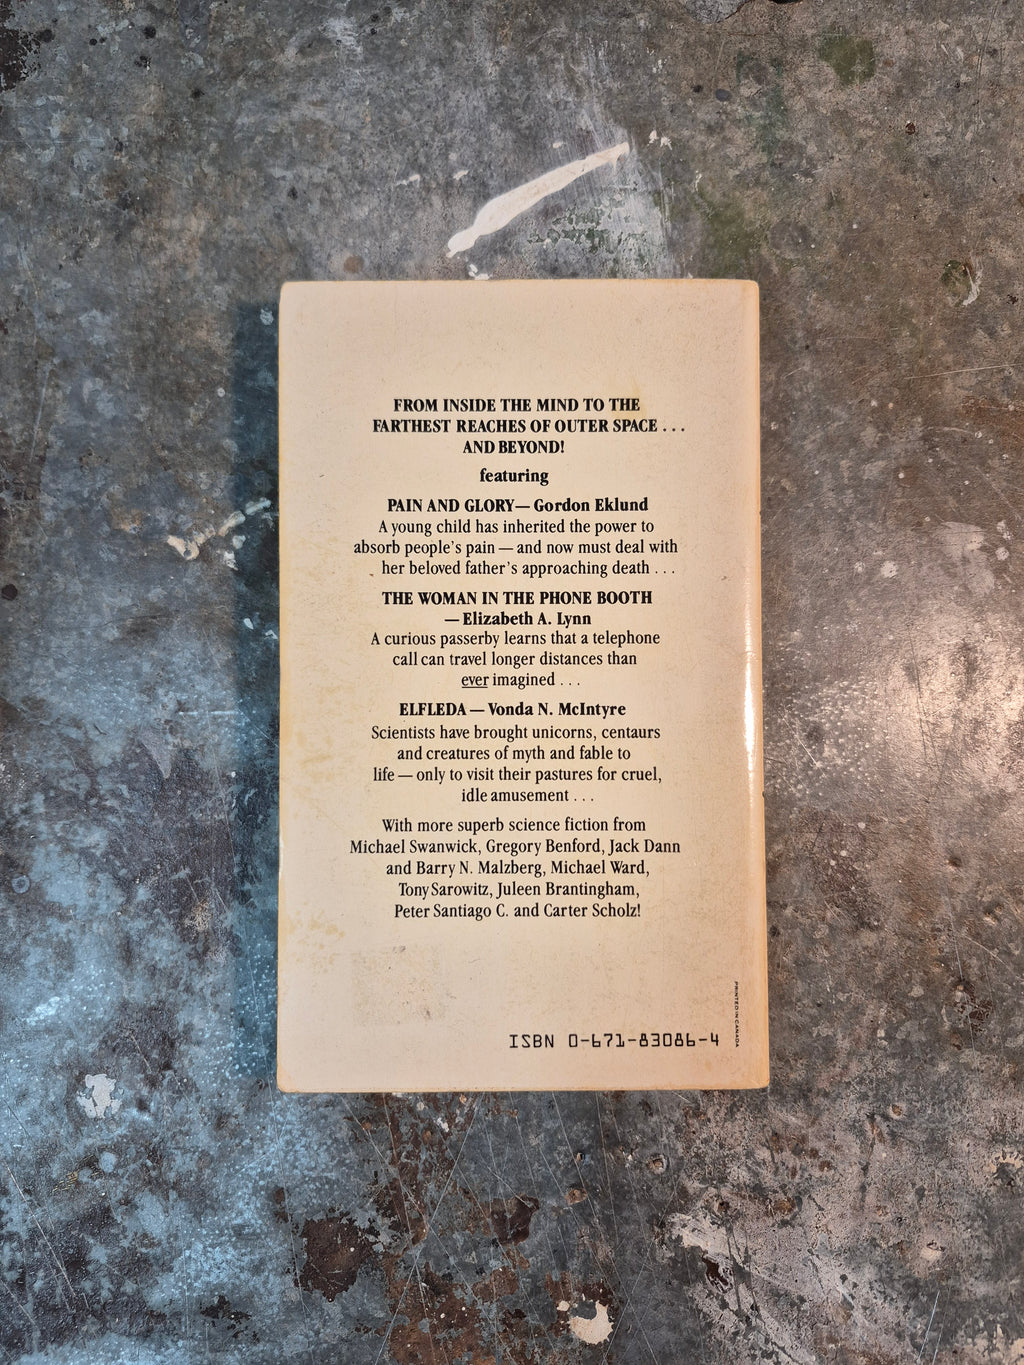 FROM INSIDE THE MIND TO THE
FARTHEST REACHES OF OUTER SPACE . . .
AND BEYOND!
featuring
PAIN AND GLORY— Gordon Eklund
A young child has inherited the power to
absorb people's pain — and now must deal with
her beloved father's approaching death . . .
THE WOMAN IN THE PHONE BOOTH
— Elizabeth A. Lynn
A curious passerby learns that a telephone
call can travel longer distances than
ever imagined . . .
ELFLEDA — Vonda N. McIntyre
Scientists have brought unicorns, centaurs
and creatures of myth and fable to
life — only to visit their pastures for cruel,
idle amusement . . .
With more superb science fiction from
Michael Swanwick, Gregory Benford, Jack Dann
and Barry N. Malzberg, Michael Ward,
Tony Sarowitz, Juleen Brantingham,
Peter Santiago C. and Carter Scholz!
PRINTED IN CANADA
ISBN 0-671-83086-4